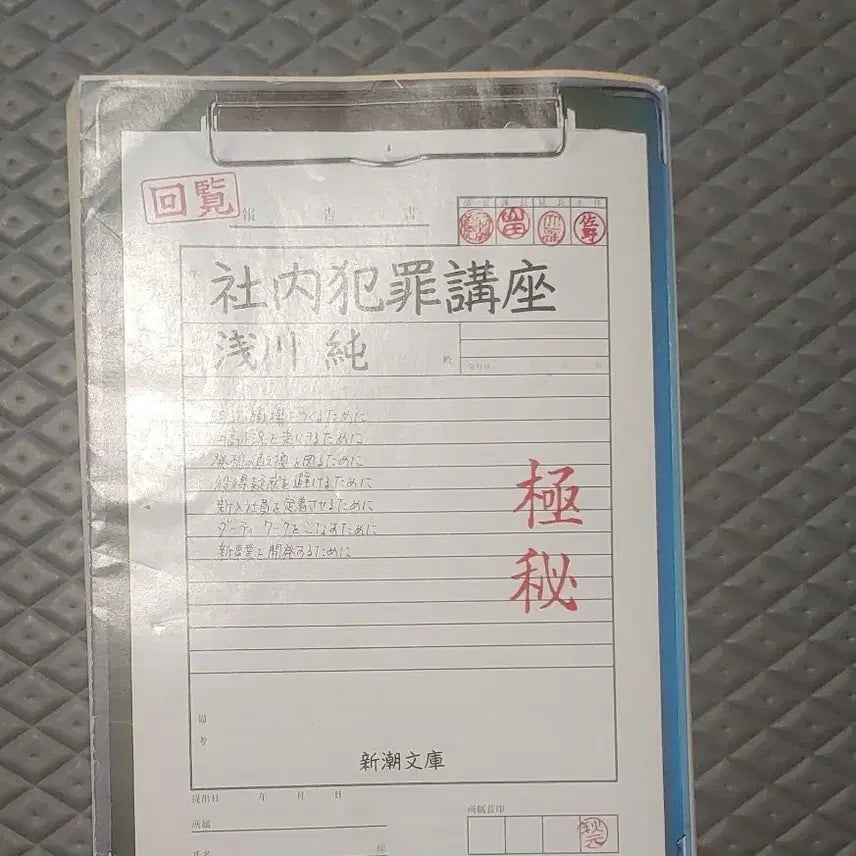 回覧
報告書
山田
佐野
社内犯罪講座
浅川 純
殿
ために
ために
発想の転換を図るために
役得意識を避けるために
新入社員を定着させるために
ダーティワークをこなすために
新事業を開発するために
極秘
備考
新潮文庫
提出日 年 月 日
所属長印
所属
秋元
氏名